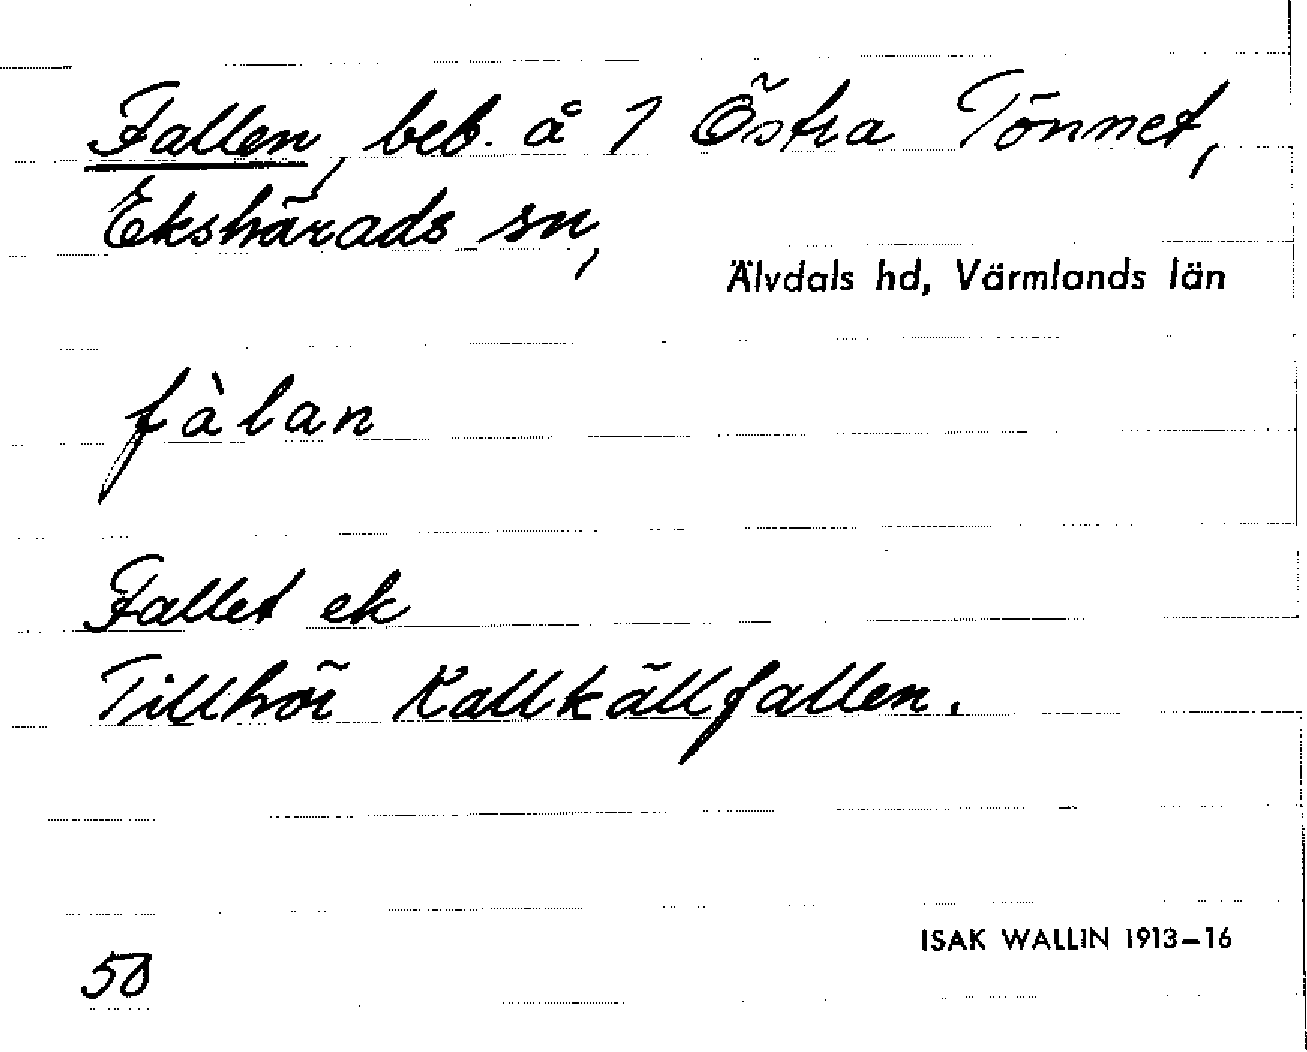 Fallen, beb. å 1 Östra Tönnet,
Ekshärads sn,
Älvdals hd, Värmlands län
fàlan
Fallet ek
Tillhör Kallkällfallen.
ISAK WALLIN 1913–16
50